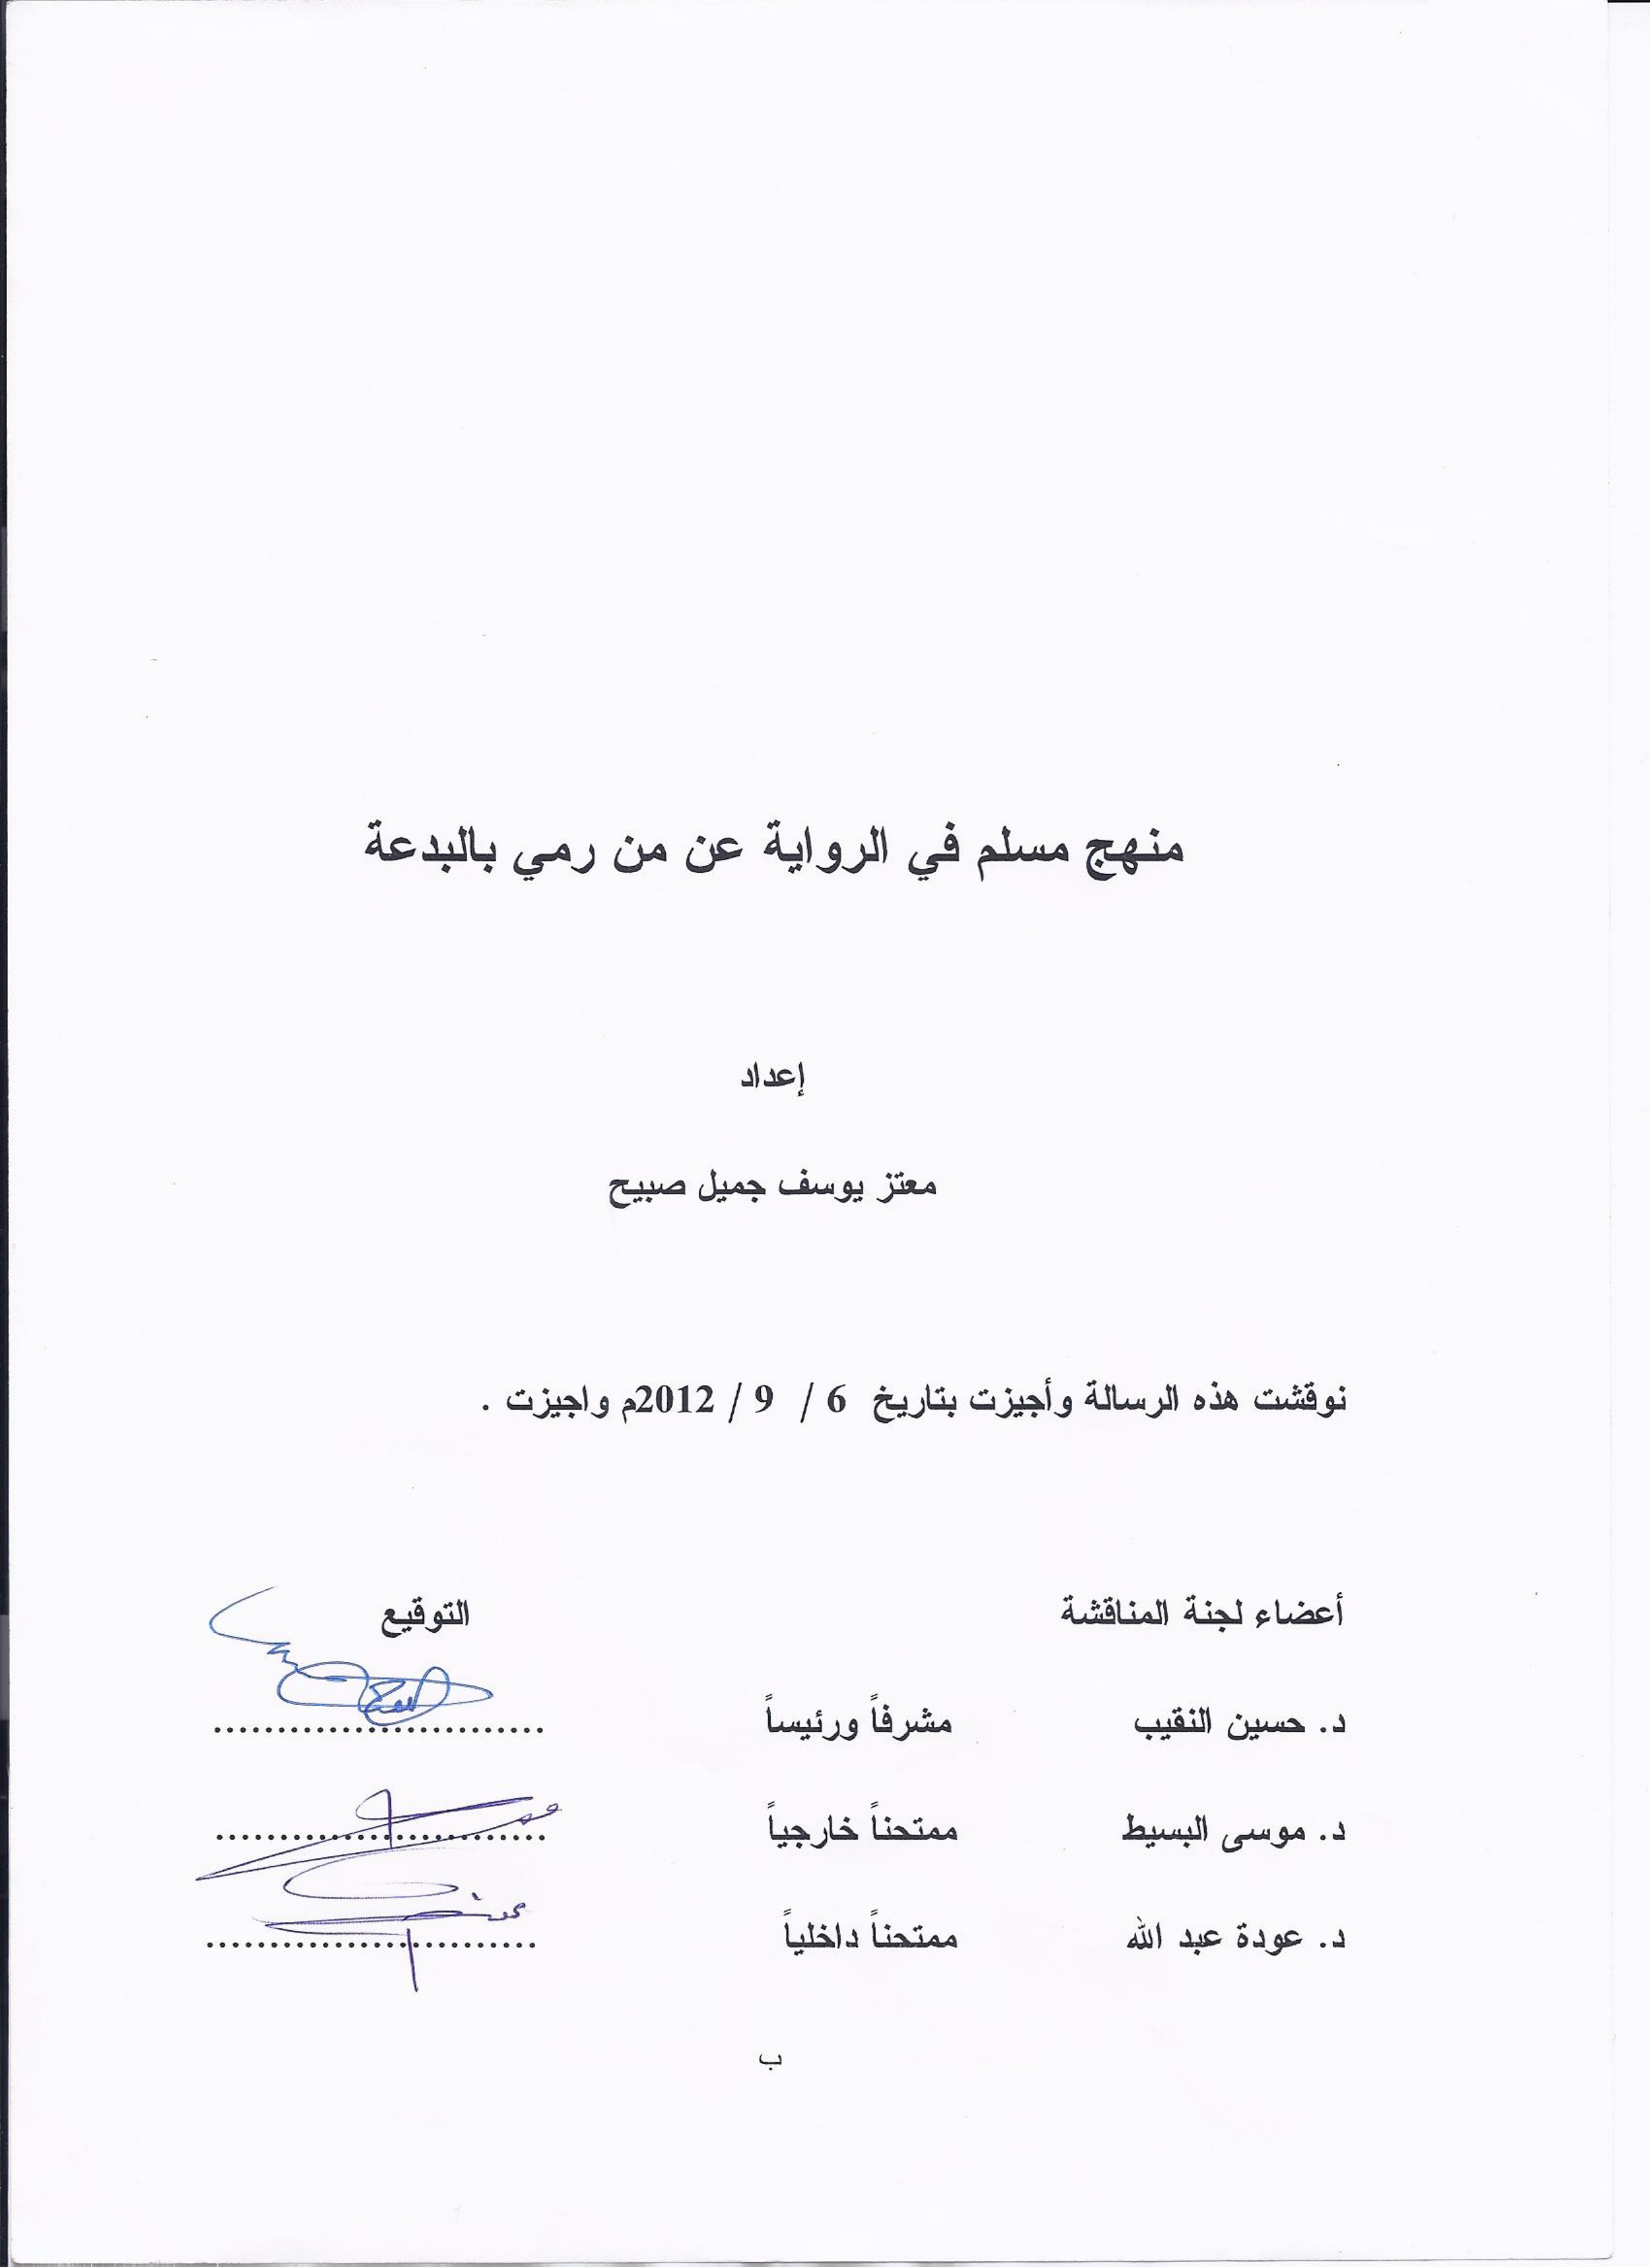 منهج مسلم في الرواية عن من رمي بالبدعة
إعداد
معتز يوسف جميل صبيح
نوقشت هذه الرسالة وأجيزت بتاريخ 6 / 9 / 2012م واجيزت .
أعضاء لجنة المناقشة التوقيع
د. حسين النقيب مشرفاً ورئيساً ..........................
د. موسى البسيط ممتحناً خارجياً ..........................
د. عودة عبد الله ممتحناً داخلياً ..........................
ب